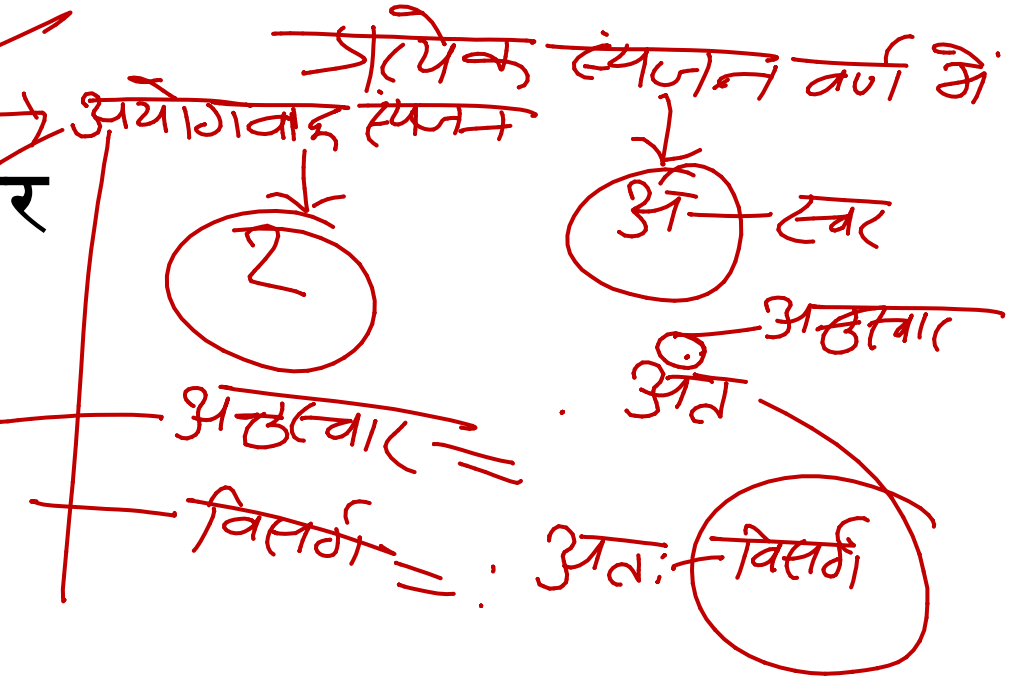 प्रत्येक व्यंजन वर्ण में
अयोगवाह व्यंजन
र
2
अ - स्वर
अनुस्वार
अंत
अनुस्वार =
विसर्ग = :
अतः - विसर्ग